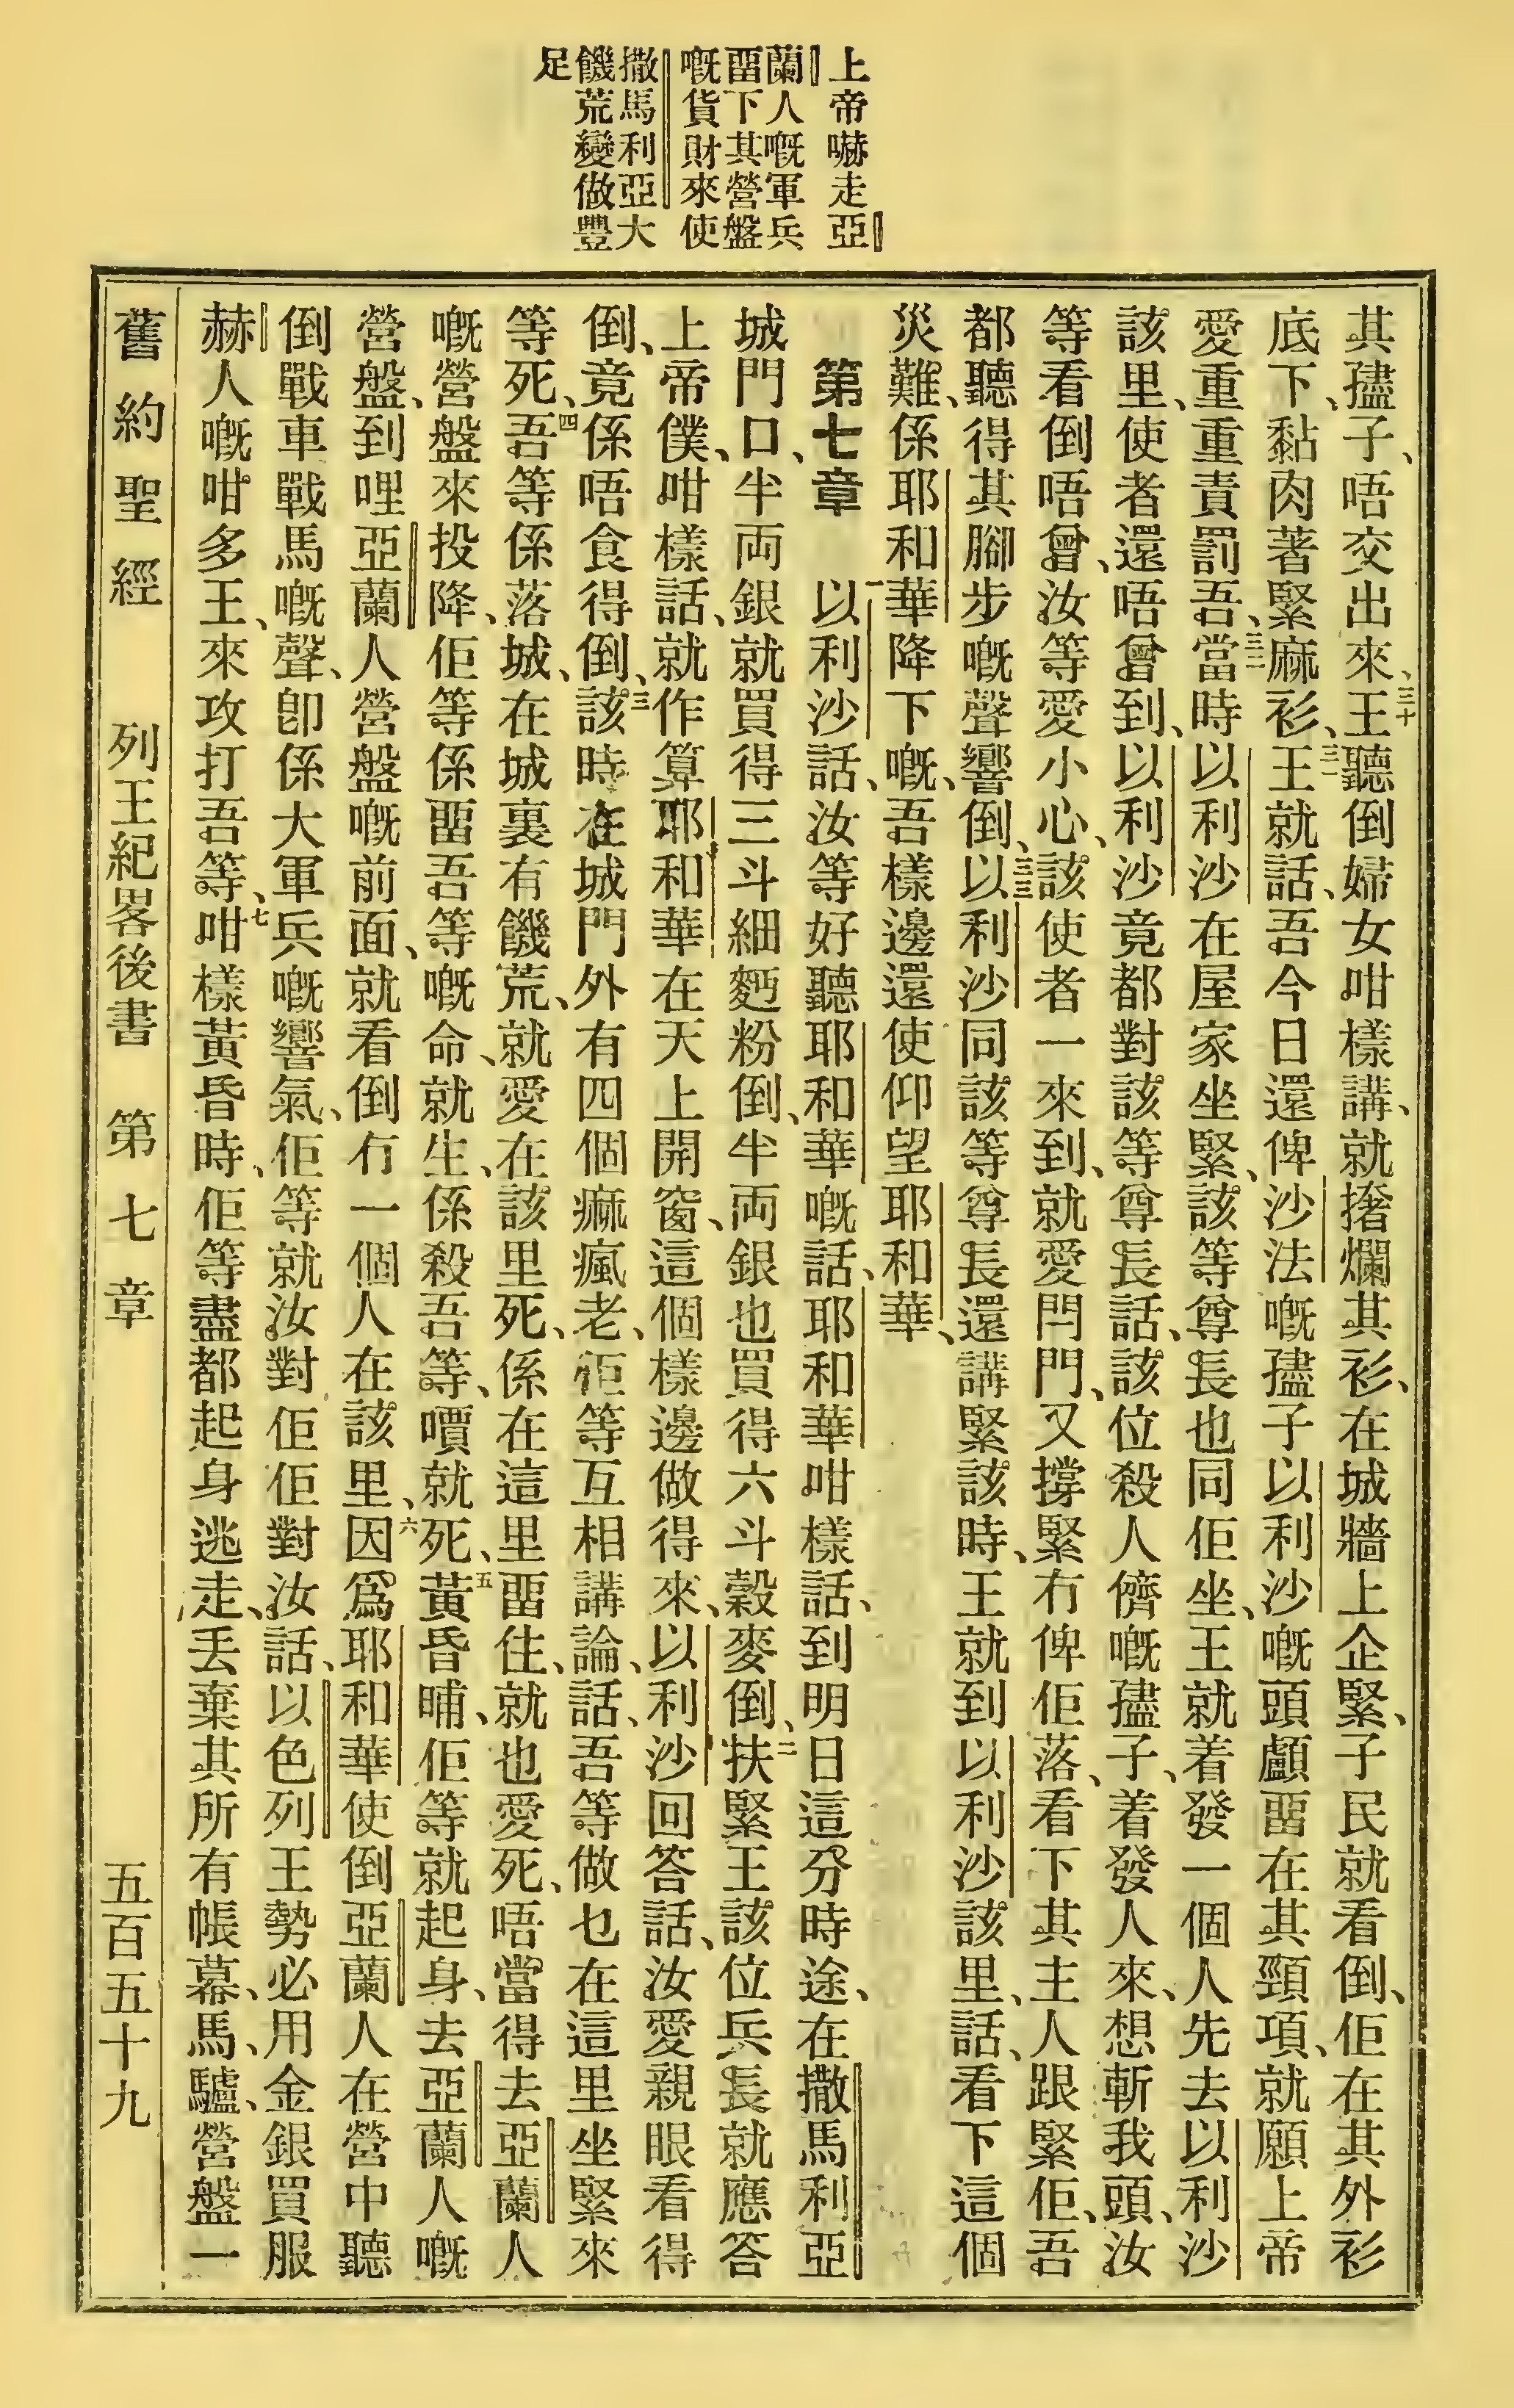 上帝嚇走亞
蘭人嘅軍兵
畱下其營盤
嘅貨財來使
撒馬利亞大
饑荒變做豐
足
其孻子、唔交出來、三十王聽倒婦女咁樣講、就撦爛其衫、在城牆上企緊、子民就看倒、佢在其外衫
底下、黏肉著緊麻衫、三一王就話、吾今日還俾沙法嘅孻子以利沙嘅頭顱畱在其頸項、就願上帝
愛重重責罰吾、三二當時以利沙在屋家坐緊、該等尊長也同佢坐、王就着發一個人先去以利沙
該里、使者還唔曾到、以利沙竟都對該等尊長話、該位殺人儕嘅孻子、着發人來、想斬我頭、汝
等看倒唔曾、汝等愛小心、該使者一來到、就愛閂門、又撐緊冇俾佢落、看下其主人跟緊佢、吾
都聽得其腳步嘅聲響倒、三三以利沙同該等尊長還講緊該時、王就到以利沙該里、話、看下這個
災難、係耶和華降下嘅、吾樣邊還使仰望耶和華、
第七章 一以利沙話、汝等好聽耶和華嘅話、耶和華咁樣話、到明日這分時途、在撒馬利亞
城門口、半両銀就買得三斗細麪粉倒、半両銀也買得六斗穀麥倒、二扶緊王該位兵長就應答
上帝僕、咁樣話、就作算耶和華在天上開窗、這個樣邊做得來、以利沙回答話、汝愛親眼看得
倒、竟係唔食得倒、三該時在城門外有四個痲瘋老、佢等互相講論、話、吾等做乜在這里坐緊來
等死、四吾等係落城、在城裏有饑荒、就愛在該里死、係在這里畱住、就也愛死、唔當得去亞蘭人
嘅營盤來投降、佢等係畱吾等嘅命、就生、係殺吾等、嘳就死、五黃昏晡、佢等就起身、去亞蘭人嘅
營盤、到哩亞蘭人營盤嘅前面、就看倒冇一個人在該里、六因爲耶和華使倒亞蘭人在營中聽
倒戰車戰馬嘅聲、卽係大軍兵嘅響氣、佢等就汝對佢佢對汝話、以色列王勢必用金銀買服
赫人嘅咁多王、來攻打吾等、七咁樣黃昏時、佢等盡都起身逃走、丟棄其所有帳幕、馬、驢、營盤一
舊約聖經 列王紀畧後書 第七章 五百五十九